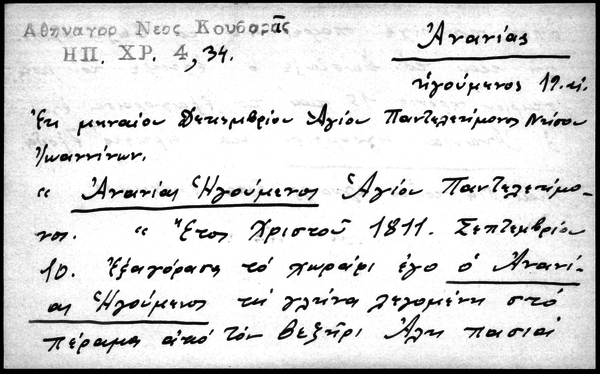 Αθηναγορ Νεος Κουβαρᾶς
ΗΠ. ΧΡ. 4, 34.
Ἀνανίας
ἡγούμενος 19. αἰ.
Ἐκ μηναίου Δεκεμβρίου Ἁγίου Παντελεήμονος Νήσου
Ἰωαννίνων.
" Ἀνανίας Ἡγούμενος Ἁγίου Παντελεήμο-
νος. " Ἔτος Χριστοῦ 1811. Σεπτεμβρίου
10. Ἐξαγόρασα τό χωράφι ἐγο ὁ Ἀνανί-
ας Ἡγούμενος τη λεγομένη στό
πέραμα ἀπό τόν βεζήρι Ἀλη πασιά